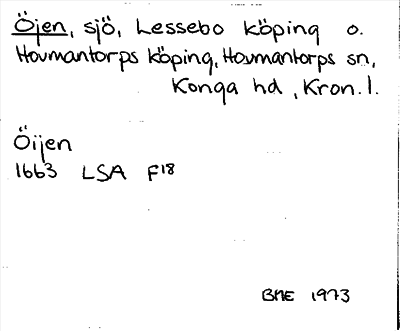 Öjen, sjö, Lessebo köping o.
Hovmantorps köping, Hovmantorps sn,
Konga hd, Kron. l.
Öijen
1663 LSA F18
BME 1973